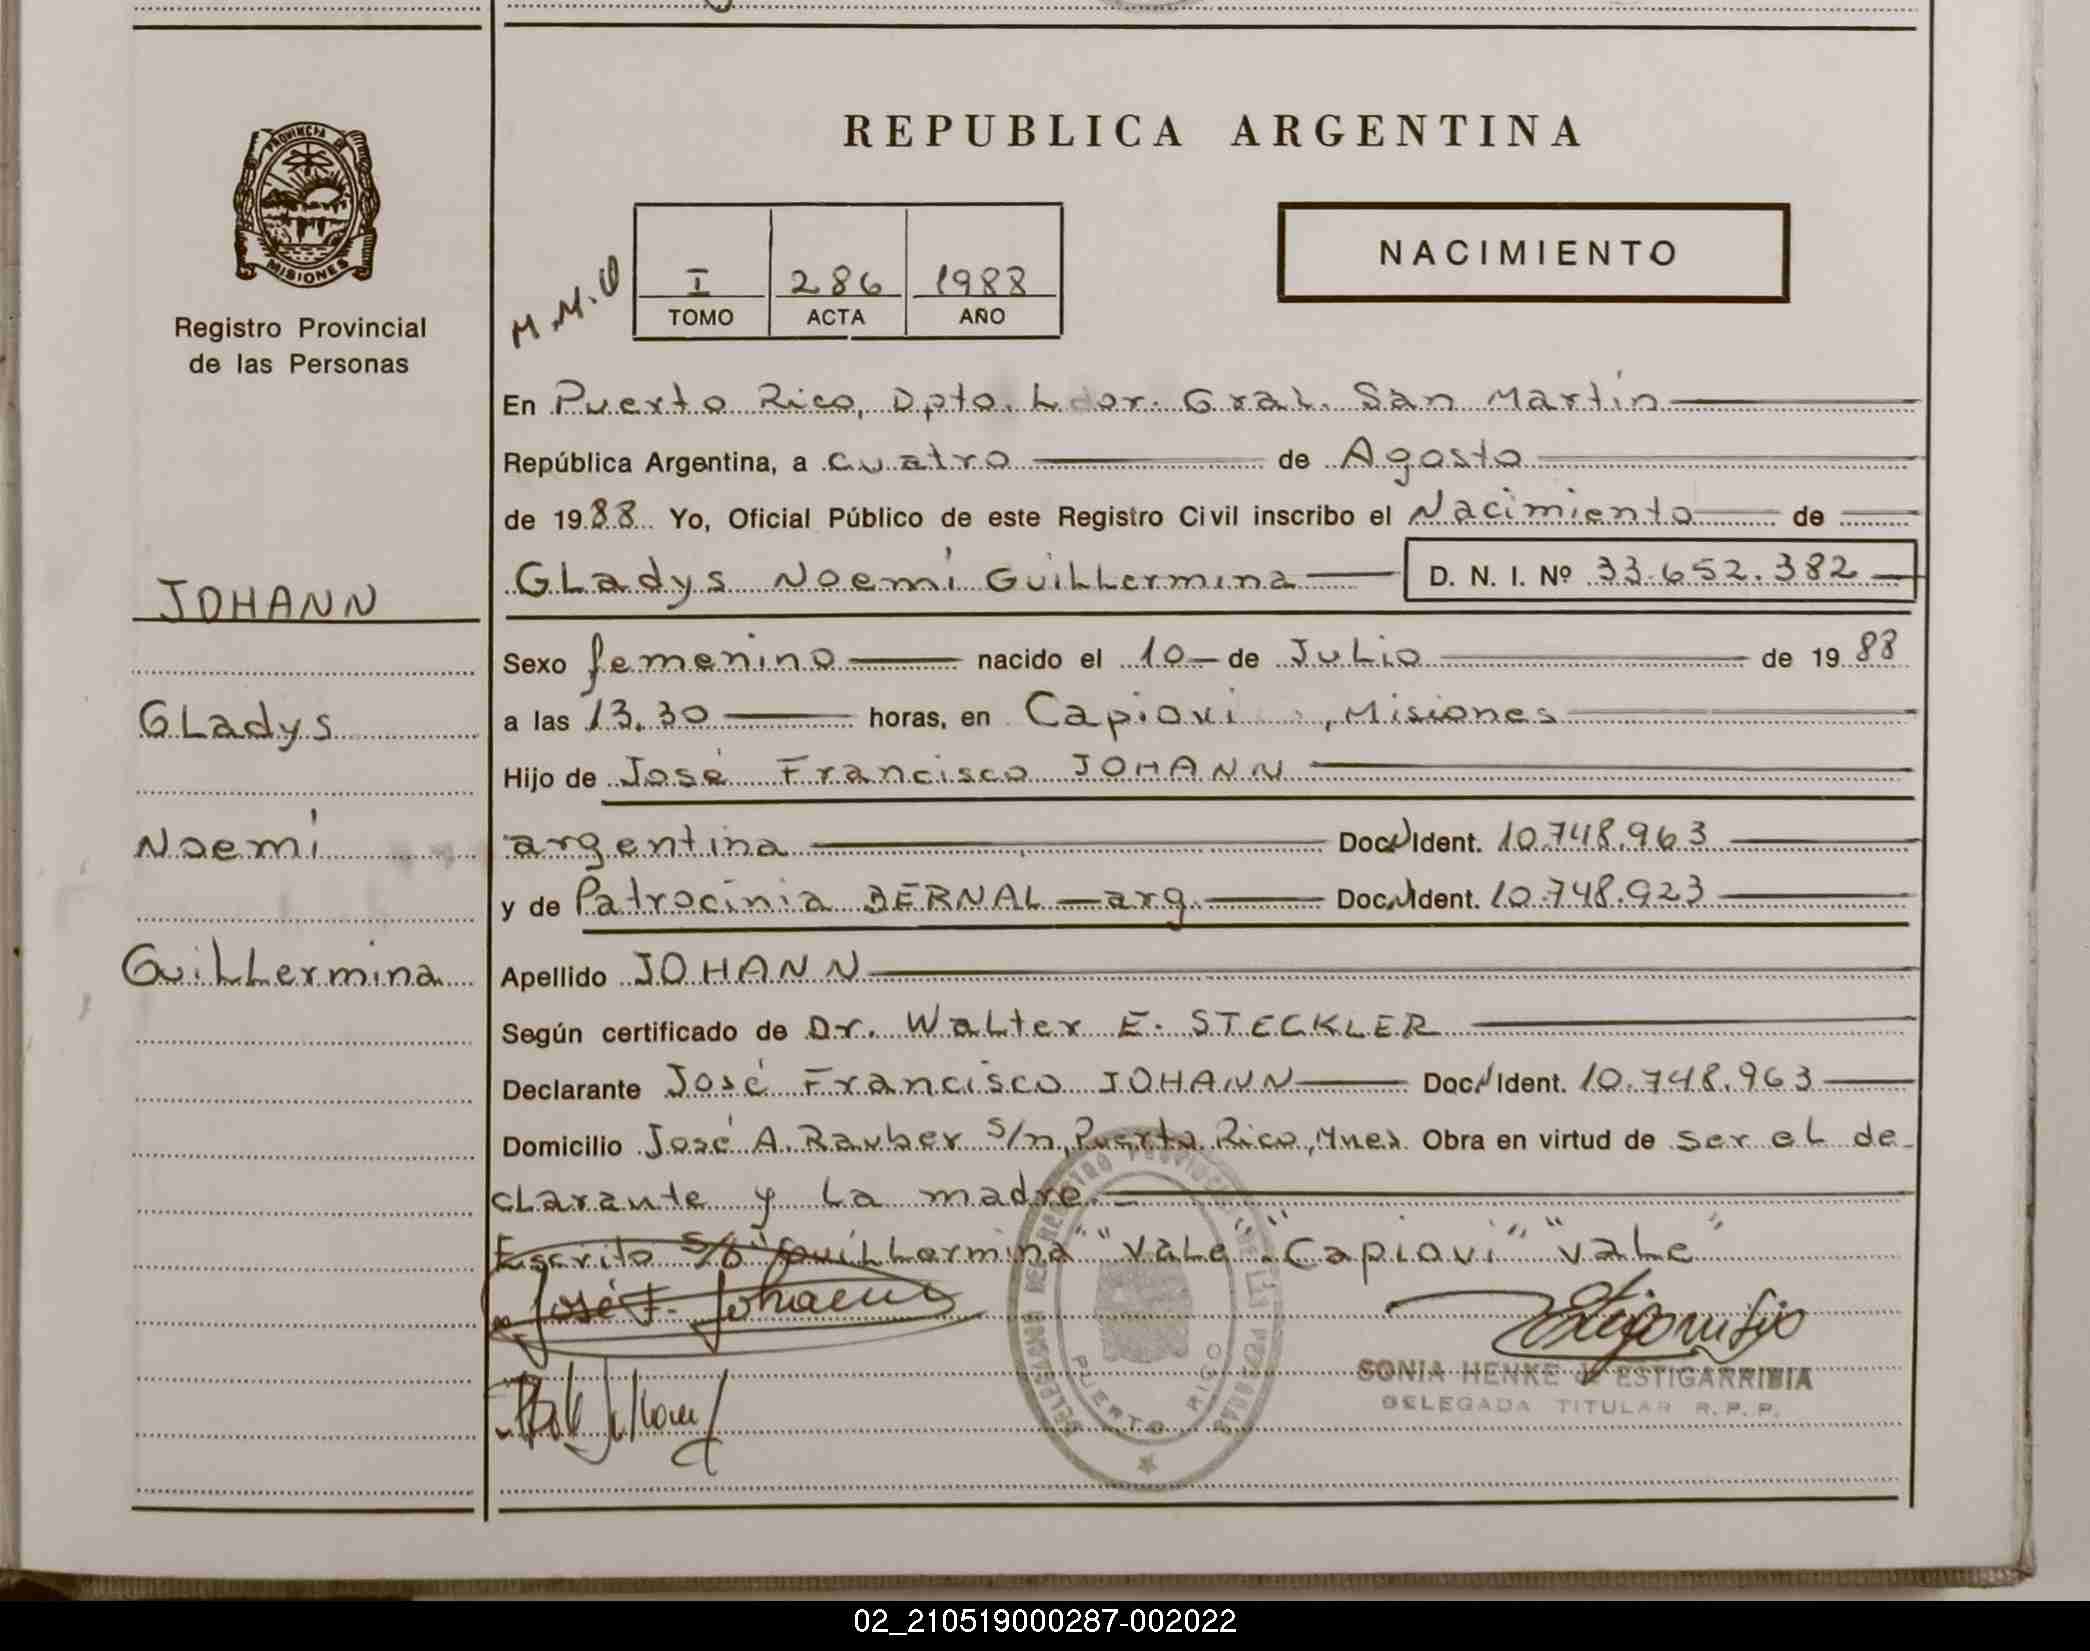 REPUBLICA ARGENTINA
PROVINCIA DE
MISIONES
Registro Provincial
de las Personas
M.M.O
I 286 1988
TOMO ACTA AÑO
NACIMIENTO
En Puerto Rico, Dpto. L dor. Gral. San Martín
República Argentina, a cuatro de Agosto
de 1988 Yo, Oficial Público de este Registro Civil inscribo el Nacimiento de
JOHANN
Gladys Noemí Guillermina D. N. I. Nº 33.652.382
Sexo femenino nacido el 10 de Julio de 1988
Gladys
a las 13.30 horas, en Capiovi, Misiones
Hijo de José Francisco JOHANN
Noemí
argentina Doc. Ident. 10.748.963
y de Patrocinia BERNAL arg. Doc. Ident. 10.748.923
Guillermina
Apellido JOHANN
Según certificado de Dr. Walter E. STECKLER
Declarante José Francisco JOHANN Doc. Ident. 10.748.963
Domicilio José A. Rauber s/n, Puerto Rico, Mnes. Obra en virtud de ser el de-
clarante y la madre.
Escrito s/b "Guillermina" "Vale". "Capiovi" "Vale"
José F. Johann
PUERTO RICO
SONIA HENKE de ESTIGARRIBIA
DELEGADA TITULAR R.P.P.
02_210519000287-002022